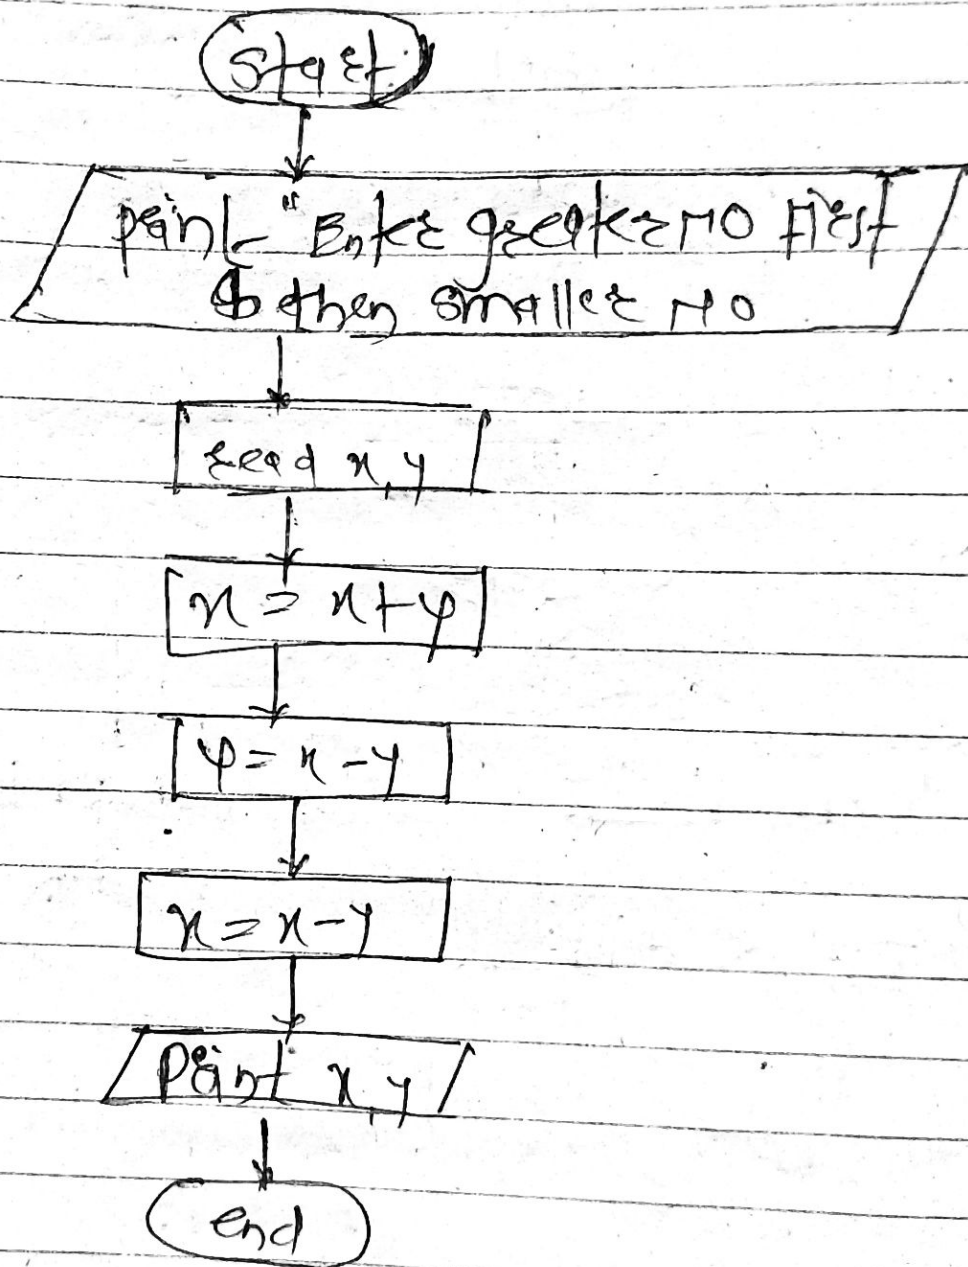 Start
print " Enter greater NO first
& then smaller NO
read x, y
x = x + y
y = x - y
x = x - y
Print x, y
end